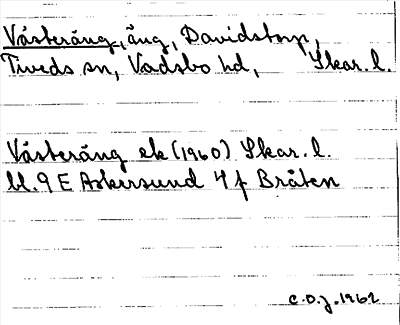 Västeräng, äng, Davidstorp,
Tiveds sn, Vadsbo hd, Skar. l.
Västeräng ek (1960) Skar. l.
bl. 9 E Askersund 4 f Bråten
C.O.J. 1962